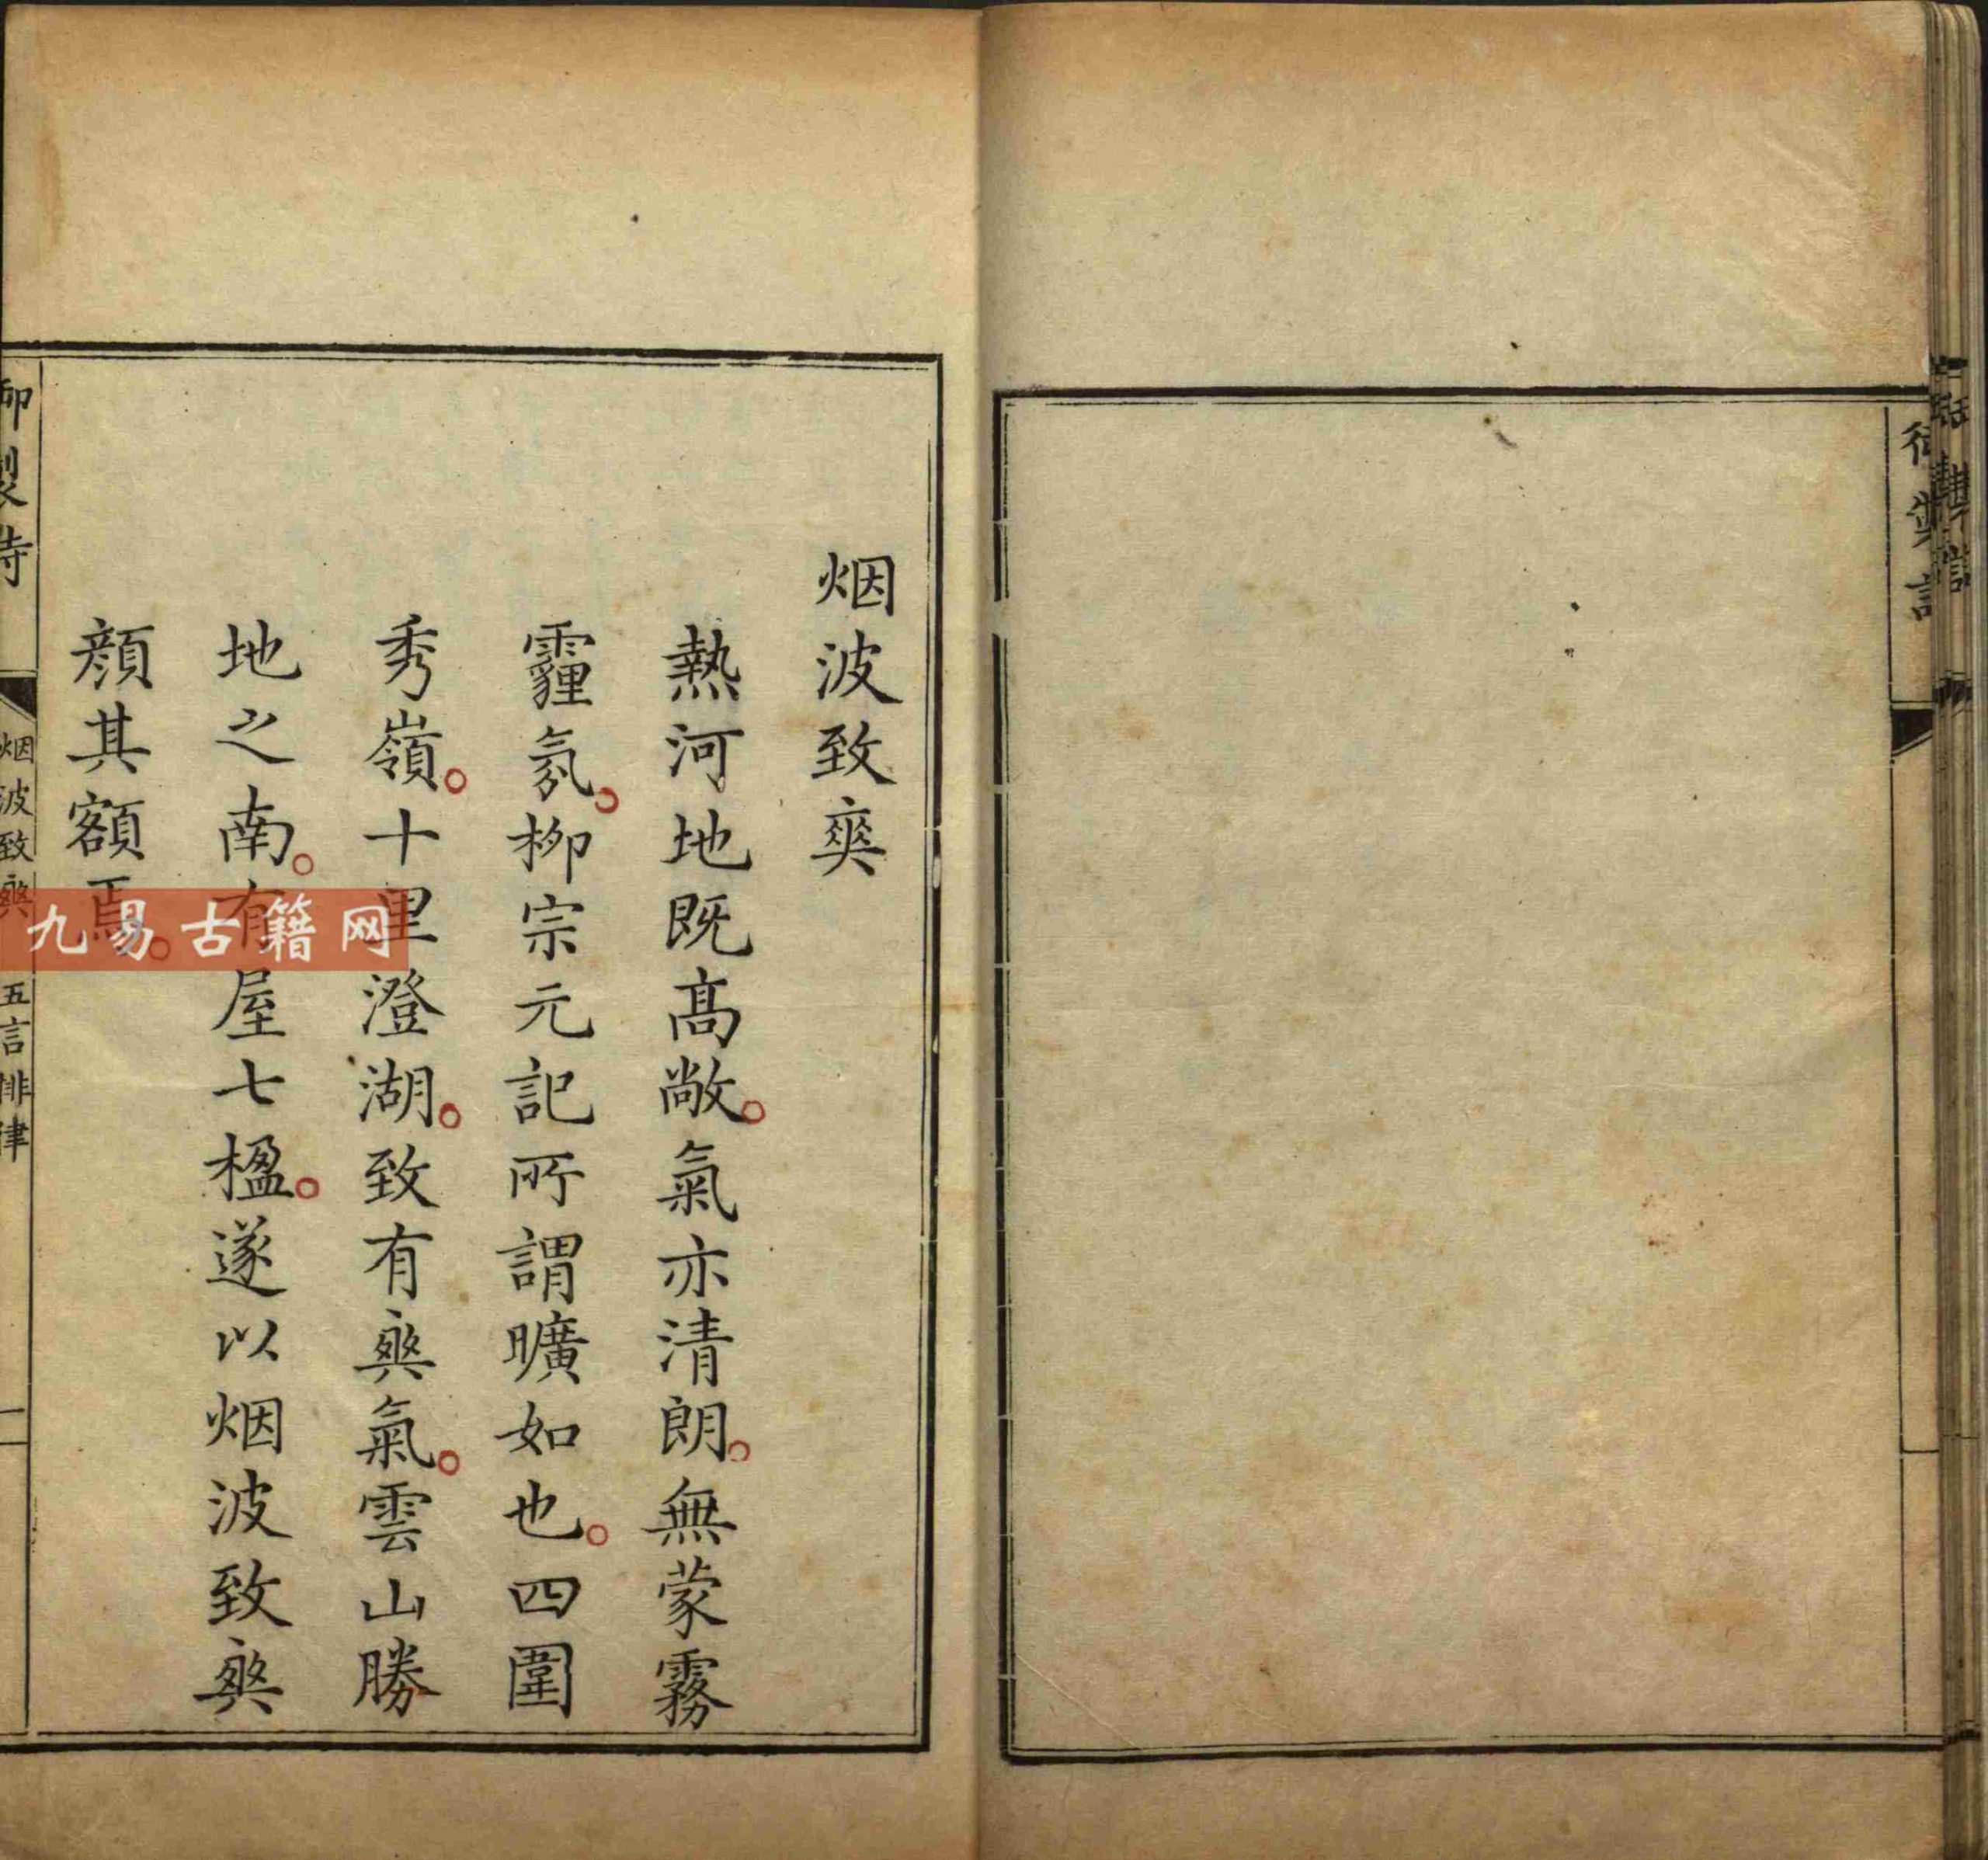 烟波致爽
熱河地既高敞。氣亦清朗。無蒙霧
霾氛。柳宗元記所謂曠如也。四圍
秀嶺。十里澄湖。致有爽氣。雲山勝
地之南。有屋七楹。遂以烟波致爽
顏其額焉。
御製詩
烟波致爽
五言排律
一
九易古籍网
御製詩